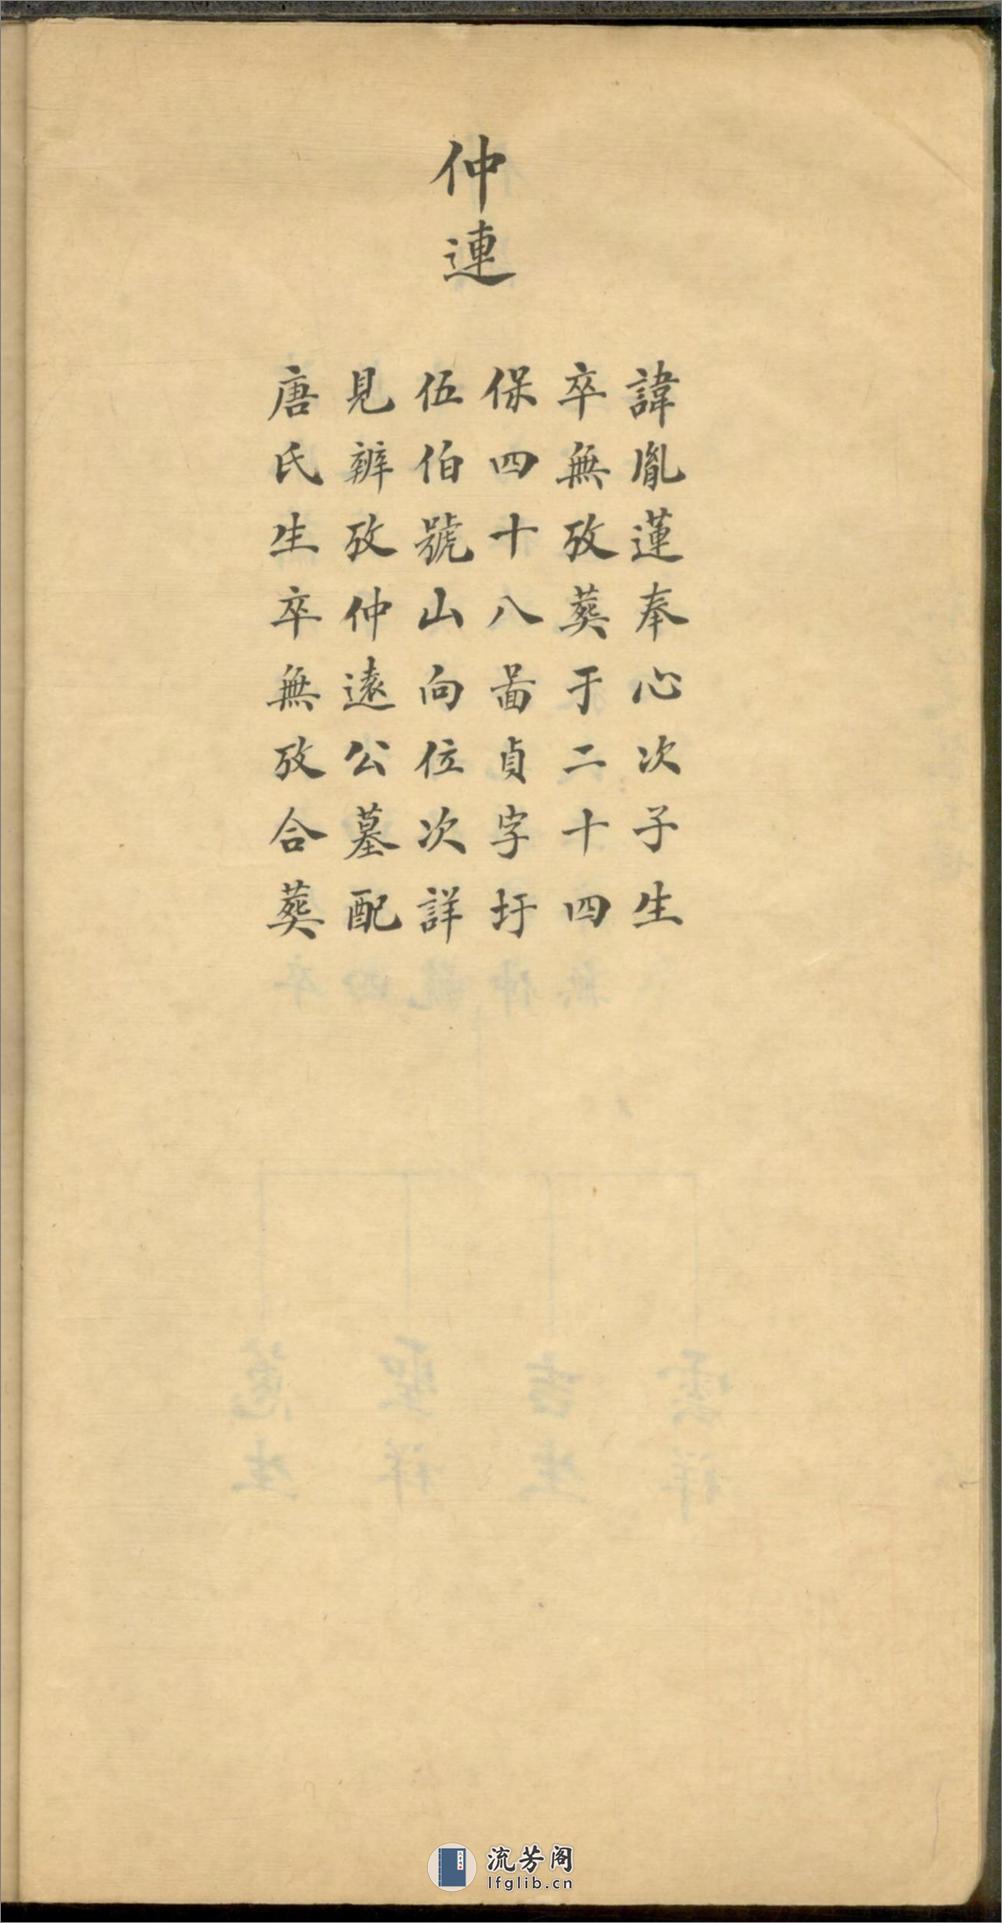 仲連
諱胤蓮奉心次子生
卒無攷葬于二十四
保四十八啚貞字圩
伍伯號山向位次詳
見辨攷仲遠公墓配
唐氏生卒無攷合葬
流芳阁
lfglib.cn